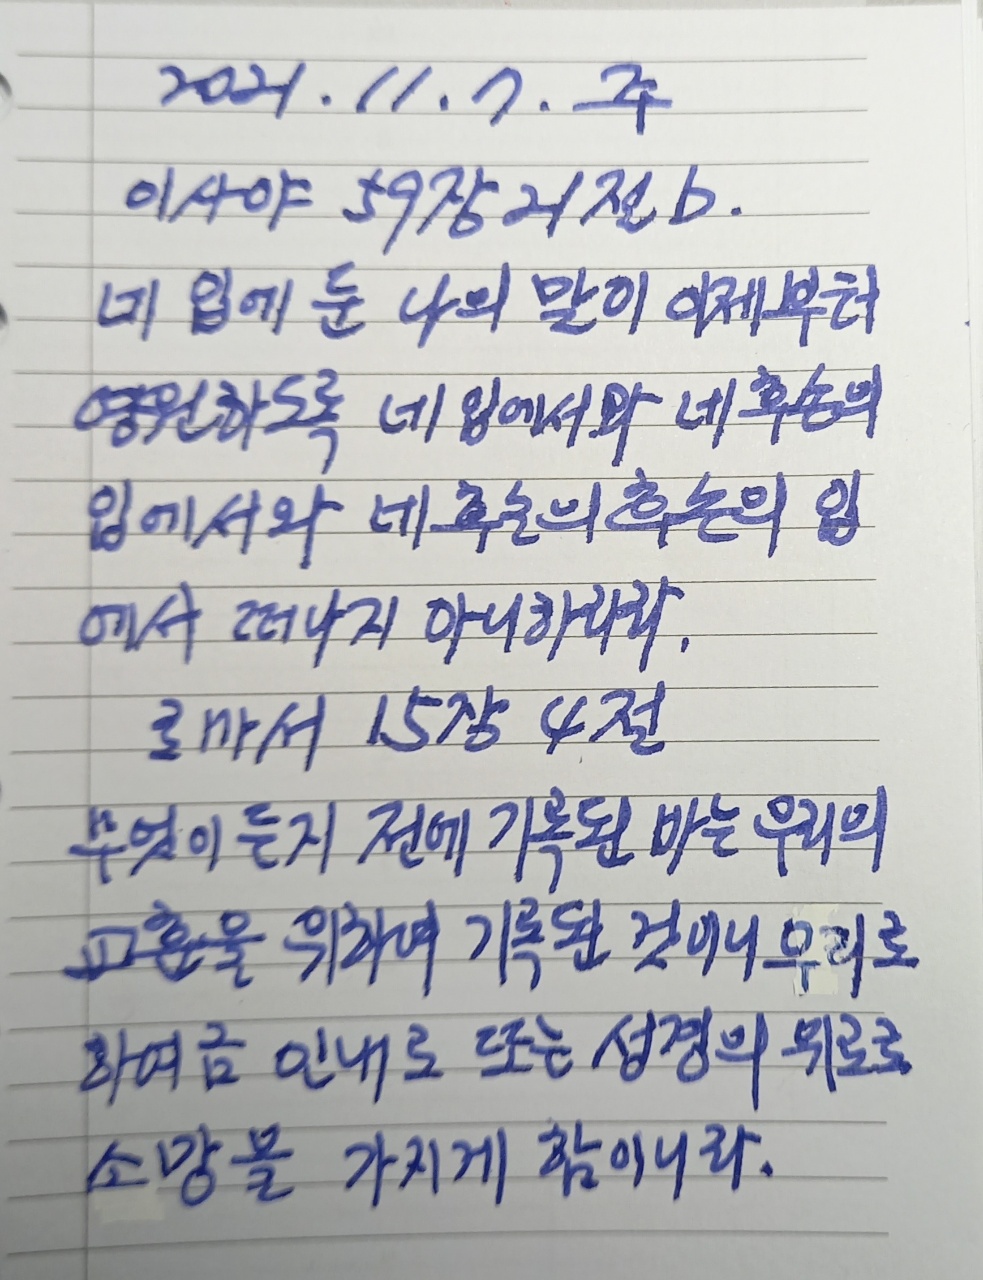 2021. 11. 7. 주
이사야 59장 21절 b.
네 입에 둔 나의 말이 이제부터
영원하도록 네 입에서와 네 후손의
입에서와 네 후손의 후손의 입
에서 떠나지 아니하리라.
로마서 15장 4절
무엇이든지 전에 기록된 바는 우리의
교훈을 위하여 기록된 것이니 우리로
하여금 인내로 또는 성경의 위로로
소망을 가지게 함이니라.